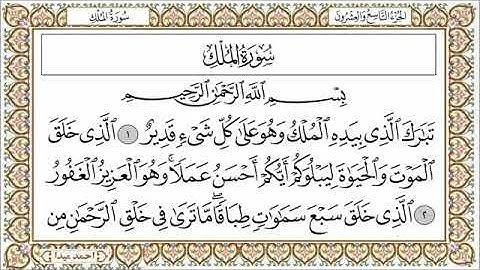 الجزء التاسع والعشرون
سورة الملك
سُورَةُ المُلْك
بِسْمِ ٱللَّهِ ٱلرَّحْمَٰنِ ٱلرَّحِيمِ
تَبَٰرَكَ ٱلَّذِى بِيَدِهِ ٱلْمُلْكُ وَهُوَ عَلَىٰ كُلِّ شَىْءٍ قَدِيرٌ ١ ٱلَّذِى خَلَقَ
ٱلْمَوْتَ وَٱلْحَيَوٰةَ لِيَبْلُوَكُمْ أَيُّكُمْ أَحْسَنُ عَمَلًا ۚ وَهُوَ ٱلْعَزِيزُ ٱلْغَفُورُ
٢ ٱلَّذِى خَلَقَ سَبْعَ سَمَٰوَٰتٍ طِبَاقًا ۖ مَّا تَرَىٰ فِى خَلْقِ ٱلرَّحْمَٰنِ مِن
احمد عيدا